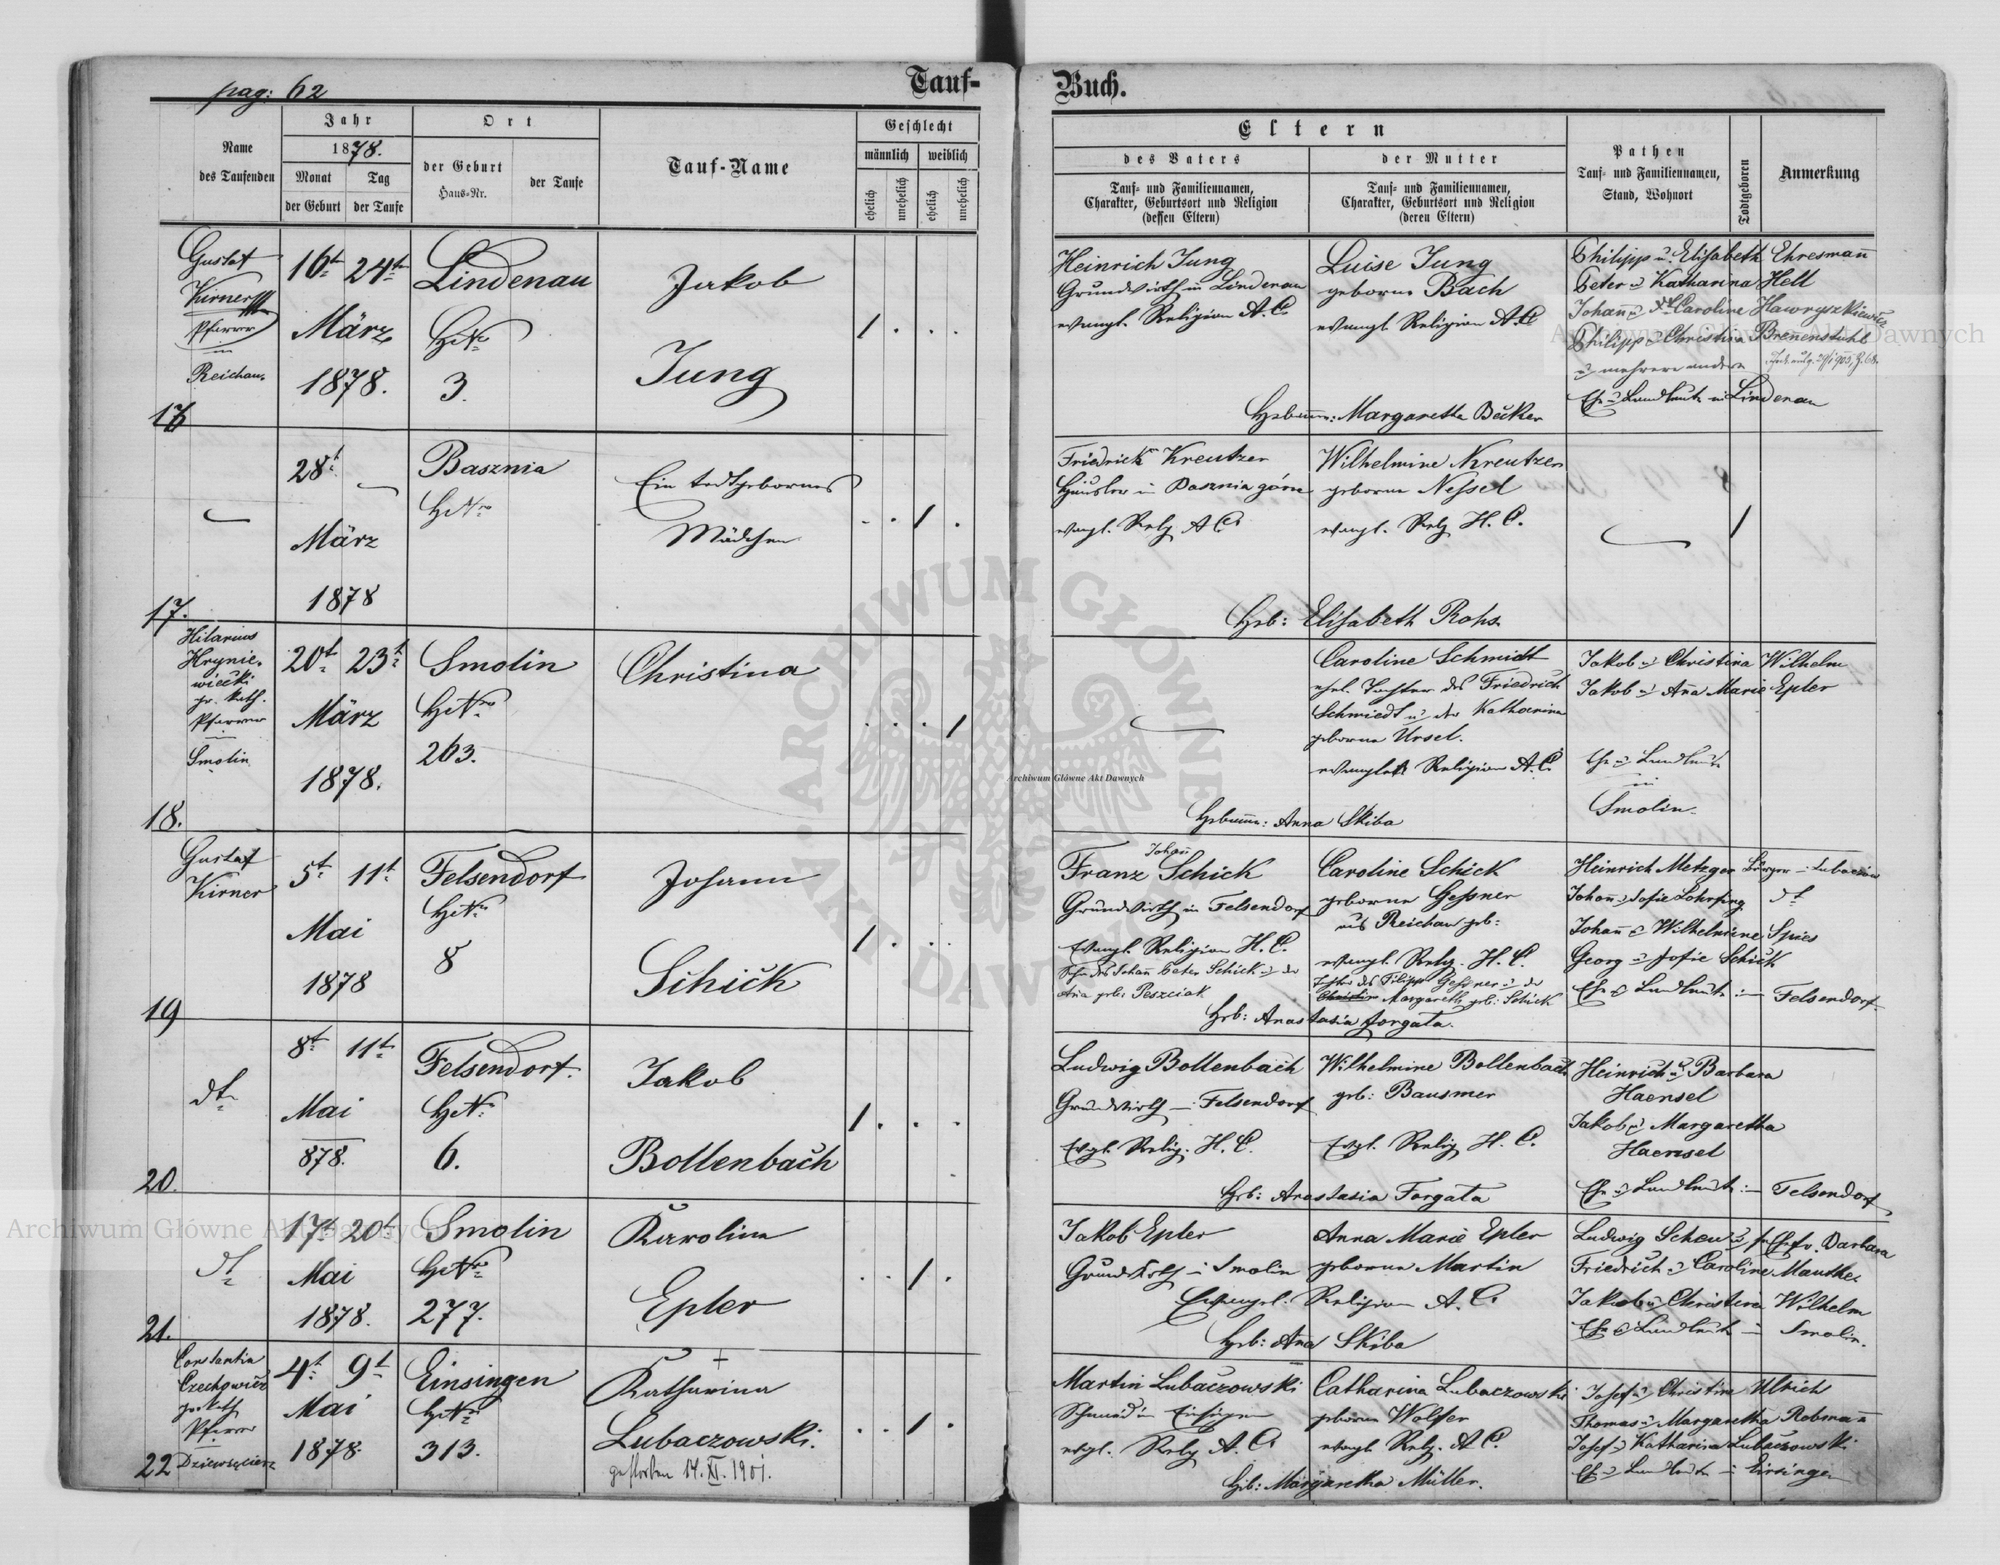 pag: 62
Tauf-
Buch.
Name
des Taufenden
Jahr
1878.
Monat
der Geburt
Tag
der Taufe
Ort
der Geburt
Haus-Nr.
der Taufe
Tauf-Name
Geschlecht
männlich
weiblich
ehelich
unehelich
ehelich
unehelich
Eltern
des Vaters
Tauf- und Familiennamen,
Charakter, Geburtsort und Religion
(dessen Eltern)
der Mutter
Tauf- und Familiennamen,
Charakter, Geburtsort und Religion
(deren Eltern)
Pathen
Tauf- und Familiennamen,
Stand, Wohnort
Todtgeboren
Anmerkung
16
Gustaf
Kirner
Pfarrer
in
Reichau.
16t 24t
März
1878.
Lindenau
HNro
3.
Jakob
Jung
Heinrich Jung
Grundwirth in Lindenau
evangl. Religion A.C.
Luise Jung
geborne Bach
evangl. Religion A.C.
Philipp u. Elisabeth Ehresmañ
Peter u Katharina Hell
Johañ u Caroline Hawryszkiewicz
Philipp u Christina Brenenstuhl
u mehrere andere
Ehe u Landleute in Lindenau
Hebame: Margaretha Becker
17.
28t
März
1878
Basznia
HNro
Ein todtgebornes
Mädchen
Friedrich Kreutzer
Häusler in Basznia górne
evangl. Relg A.C.
Wilhelmine Kreutzer
geborne Nessel
evangl. Relg H.C.
Heb: Elisabeth Rohs
18.
Hilarius
Hrynie-
wiecki
gr. kath.
Pfarrer
Smolin
20t 23t
März
1878.
Smolin
HNro
263.
Christina
Caroline Schmidt
ehel. Tochter des Friedrich
Schmiedt u der Katharina
geborne Ursel.
Religion A.C.
Jakob u Christina Wilhelm
Jakob u Aña Marie Epler
Ehe u Landleute
in
Smolin.
Hebame: Anna Skiba
19
Gustaf
Kirner
5t 11t
Mai
1878
Felsendorf
HNro
8
Johann
Schick
Johañ
Franz Schick
Grundwirth in Felsendorf
Evangl. Religion H.C.
Sohn des Johañ Peter Schick u der
Aña geb: Peszciak
Caroline Schick
geborne Gessner
aus Reichau geb:
evangl. Relg. H.C.
Tochter des Filipp Gessner u der
Christin Margareth geb: Schick
Heinrich Metzger Bürger in Lubaczów
Johañ u Sofie Lohrfing dt
Johañ u Wilhelmine Spies
Georg u Sofie Schick
Ehe u Landleute in Felsendorf
Heb: Anastasia Forgata.
20.
dt
8t 11t
Mai
878.
Felsendorf.
HN:
6.
Jakob
Bollenbach
Ludwig Bollenbach
Grundwirth in Felsendorf
Evgl. Relig. H.C.
Wilhelmine Bollenbach
geb: Bausmer
Evgl. Relig H.C.
Heinrich u Barbara
Haensel
Jakob u Margaretha
Haensel
Ehe u Landleute in Felsendorf
Heb: Anastasia Forgata
21.
dt
17t 20t
Mai
1878.
Smolin
HNro
277.
Karolina
Epler
Jakob Epler
Grundwirth in Smolin
Anna Marie Epler
geborne Martin
Evangel. Religion A.C.
Ludwig Schau u Barbara
Friedrich u Caroline Manthe
Jakob u Christina Wilhelm
Ehe u Landleute in Smolin.
Heb: Aña Skiba
22
Constantin
Czechowicz
gr kath
Pfarrer
4t 9t
Mai
1878.
Einsingen
HNro
313.
Katharina
Lubaczowski.
gestorben 14. XI. 1901.
Martin Lubaczowski
Schmied in Einsingen
evgl. Relg A.C.
Catharina Lubaczowski
geborne Wolfer
evangl Relg. A.C.
Josef u Christine Ulrich
Thomas u Margaretha Robmañ
Josef u Katharina Lubaczowski
Ehe u Landleute in Einsingen
Heb: Margaretha Müller.
Archiwum Główne Akt Dawnych
Archiwum Główne Akt Dawnych
Archiwum Główne Akt Dawnych
ARCHIWUM GŁÓWNE AKT DAWNYCH